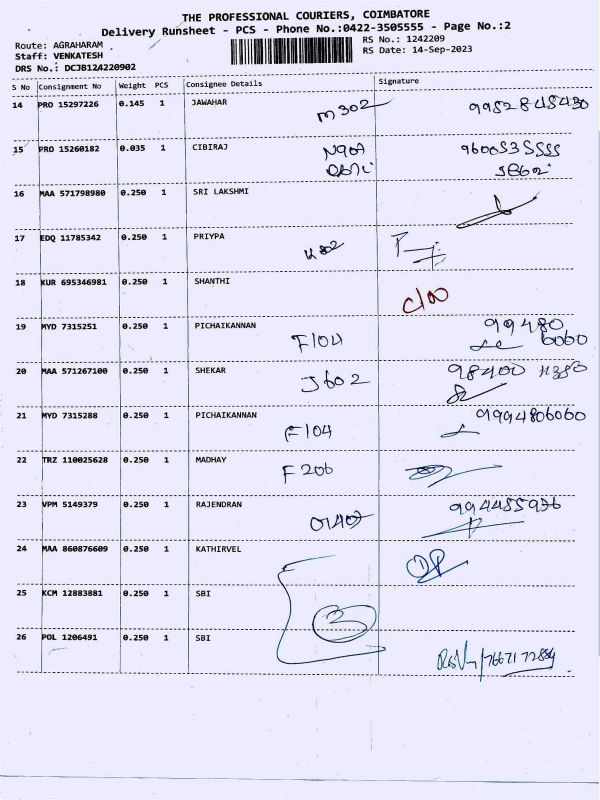 THE PROFESSIONAL COURIERS, COIMBATORE
Delivery Runsheet - PCS - Phone No.:0422-3505555 - Page No.:2
Route: AGRAHARAM RS No.: 1242209
Staff: VENKATESH RS Date: 14-Sep-2023
DRS No.: DCJB124220902
S No Consignment No Weight PCS Consignee Details Signature
14 PRO 15297226 0.145 1 JAWAHAR M302 9952845430
15 PRO 15260182 0.035 1 CIBIRAJ N907 9600535555
16 MAA 571798980 0.250 1 SRI LAKSHMI
17 EDQ 11785342 0.250 1 PRIYPA K802
18 KUR 695346981 0.250 1 SHANTHI
19 MYD 7315251 0.250 1 PICHAIKANNAN F104 99480
6060
20 MAA 571267100 0.250 1 SHEKAR J602 98400 11380
21 MYD 7315288 0.250 1 PICHAIKANNAN F104 9994806060
22 TRZ 110025628 0.250 1 MADHAY F206
23 VPM 5149379 0.250 1 RAJENDRAN O1407 994485976
24 MAA 860876609 0.250 1 KATHIRVEL
25 KCM 12883881 0.250 1 SBI
3
26 POL 1206491 0.250 1 SBI